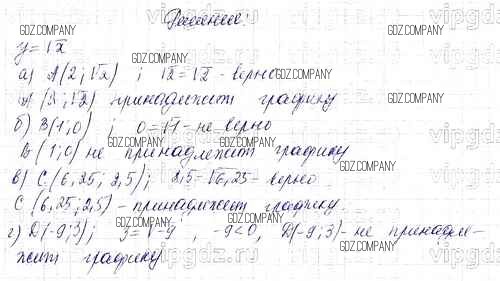 Решение:
y=√x
а) A(2;√2) ; √2=√2 - верно
A (2;√2) принадлежит графику
б) B(1;0) ; 0=√1 - не верно
B (1;0) не принадлежит графику
в) C(6,25; 2,5); 2,5=√6,25 - верно
C (6,25; 2,5) - принадлежит графику.
г) D(-9;3); √-9 , -9<0, D(-9;3)- не принадле-
жит графику
GDZ.COMPANY
vipgdz.ru